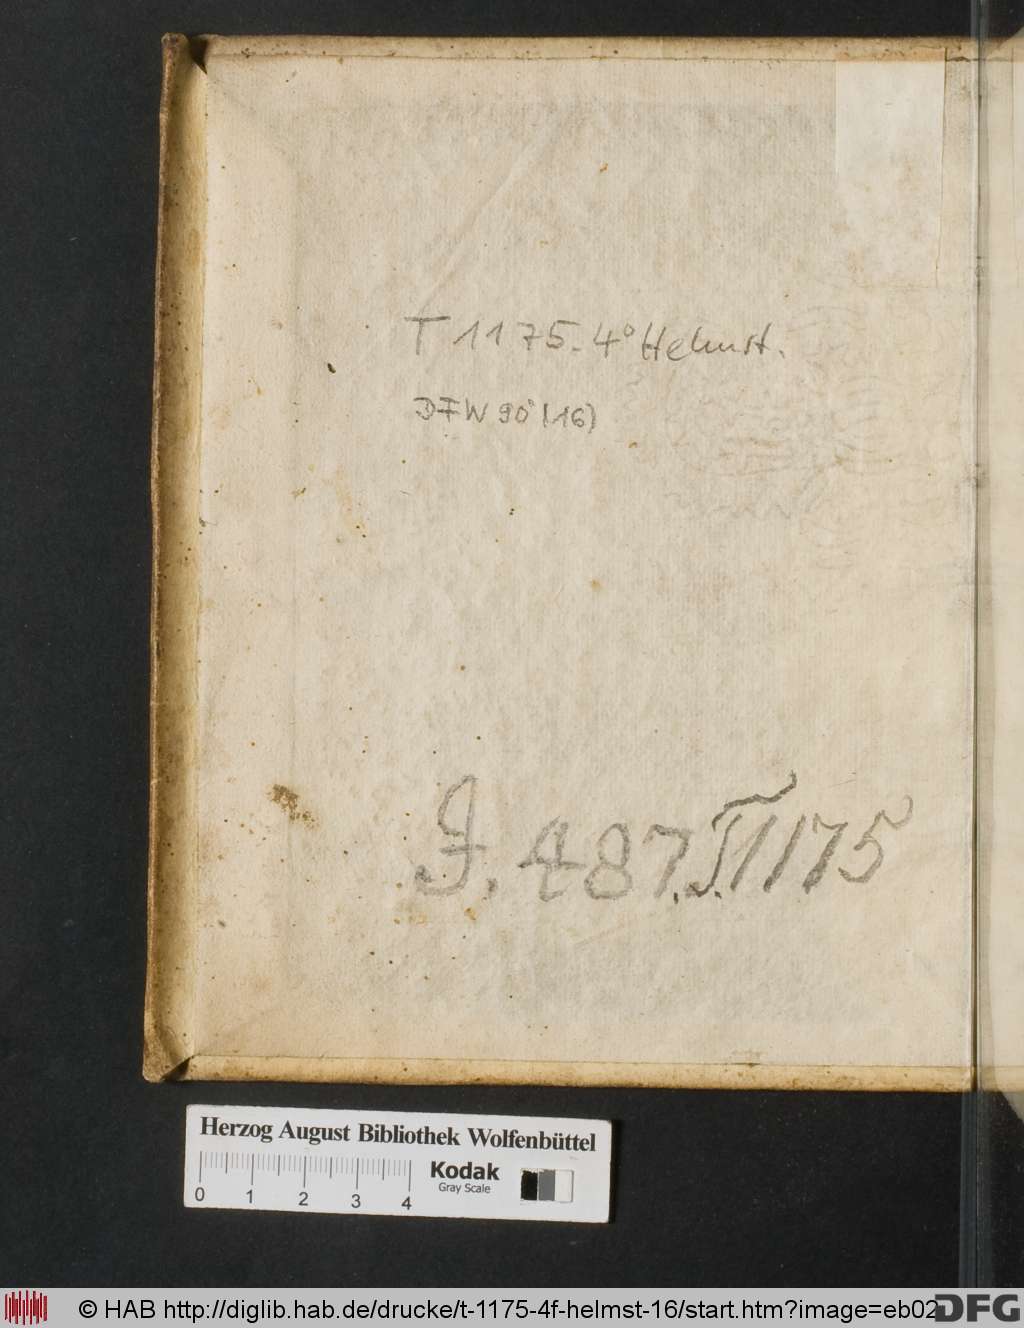 T 1175. 4° Helmst.
DFW 90 (16)
J. 487. T. 1175
Herzog August Bibliothek Wolfenbüttel
0 1 2 3 4
Kodak
Gray Scale
© HAB http://diglib.hab.de/drucke/t-1175-4f-helmst-16/start.htm?image=eb02
DFG